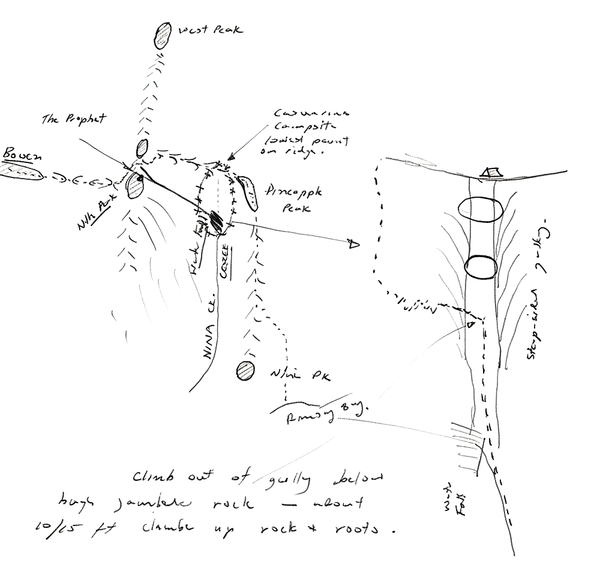 West Peak
The Prophet
Casuarina
Campsite
lowest point
on ridge.
Bowen
Nth Peak
Pineapple
Peak
GORGE
NINA CK.
Nina PK
Ramsay Bay.
Steep-sided gully.
Falls
Climb out of gully below
huge jambed rock — about
10/15 ft climb up rock & roots.